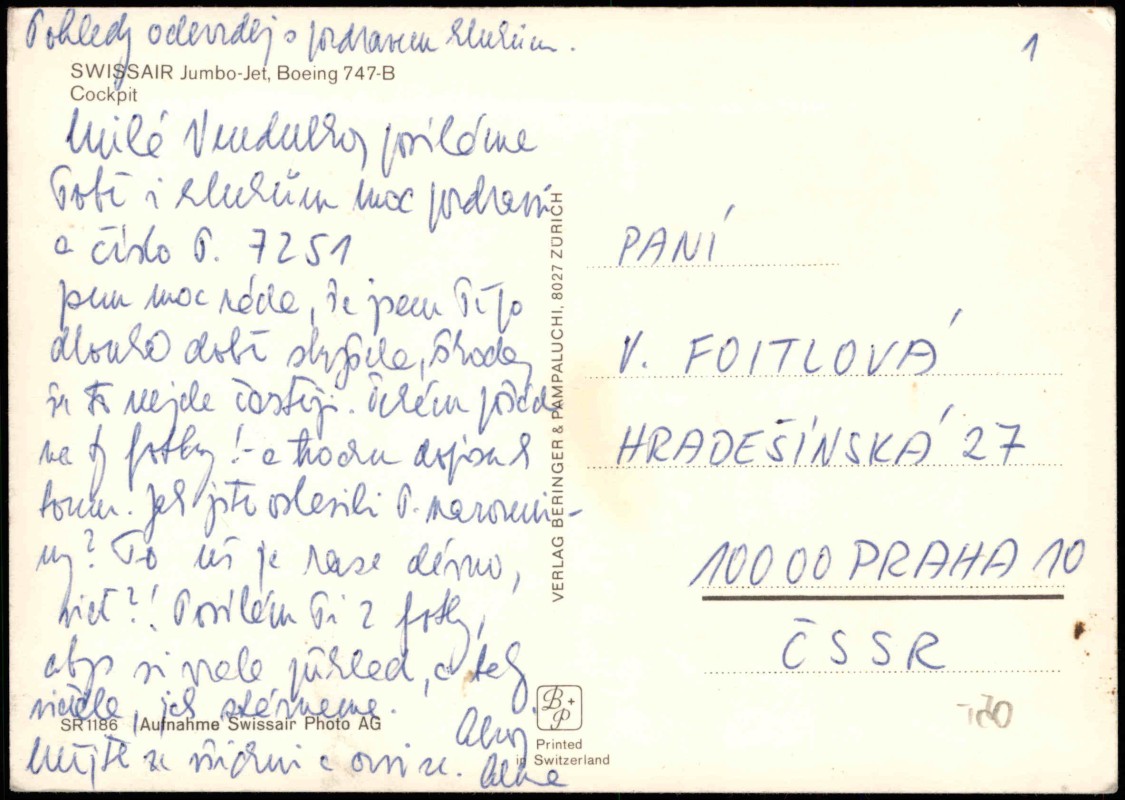 Pohledy odevzdej s pozdravem klukům.
1
SWISSAIR Jumbo-Jet, Boeing 747-B
Cockpit
Milá Vendulko, posíláme
Tobě i klukům moc pozdravů
a číslo T. 7251
jsem moc ráda, že jsem Tě po
dlouhé době slyšela, škoda,
že to nejde častěji. Čekám pořád
na ty fotky! - a trochu dopisů k
tomu. Jak jste oslavili T. narozeni-
ny? To už je zase dávno,
viď?! Posílám Ti 2 fotky,
abys si vedla přehled, a taky
viděla, jak stárneme.
SR1186 Aufnahme Swissair Photo AG
Mějte se všichni a ozvi se.
Ahoj
Alena
VERLAG BERINGER & PAMPALUCHI, 8027 ZÜRICH
B+P
Printed
in Switzerland
PANÍ
V. FOITLOVÁ
HRADEŠÍNSKÁ 27
100 00 PRAHA 10
ČSSR